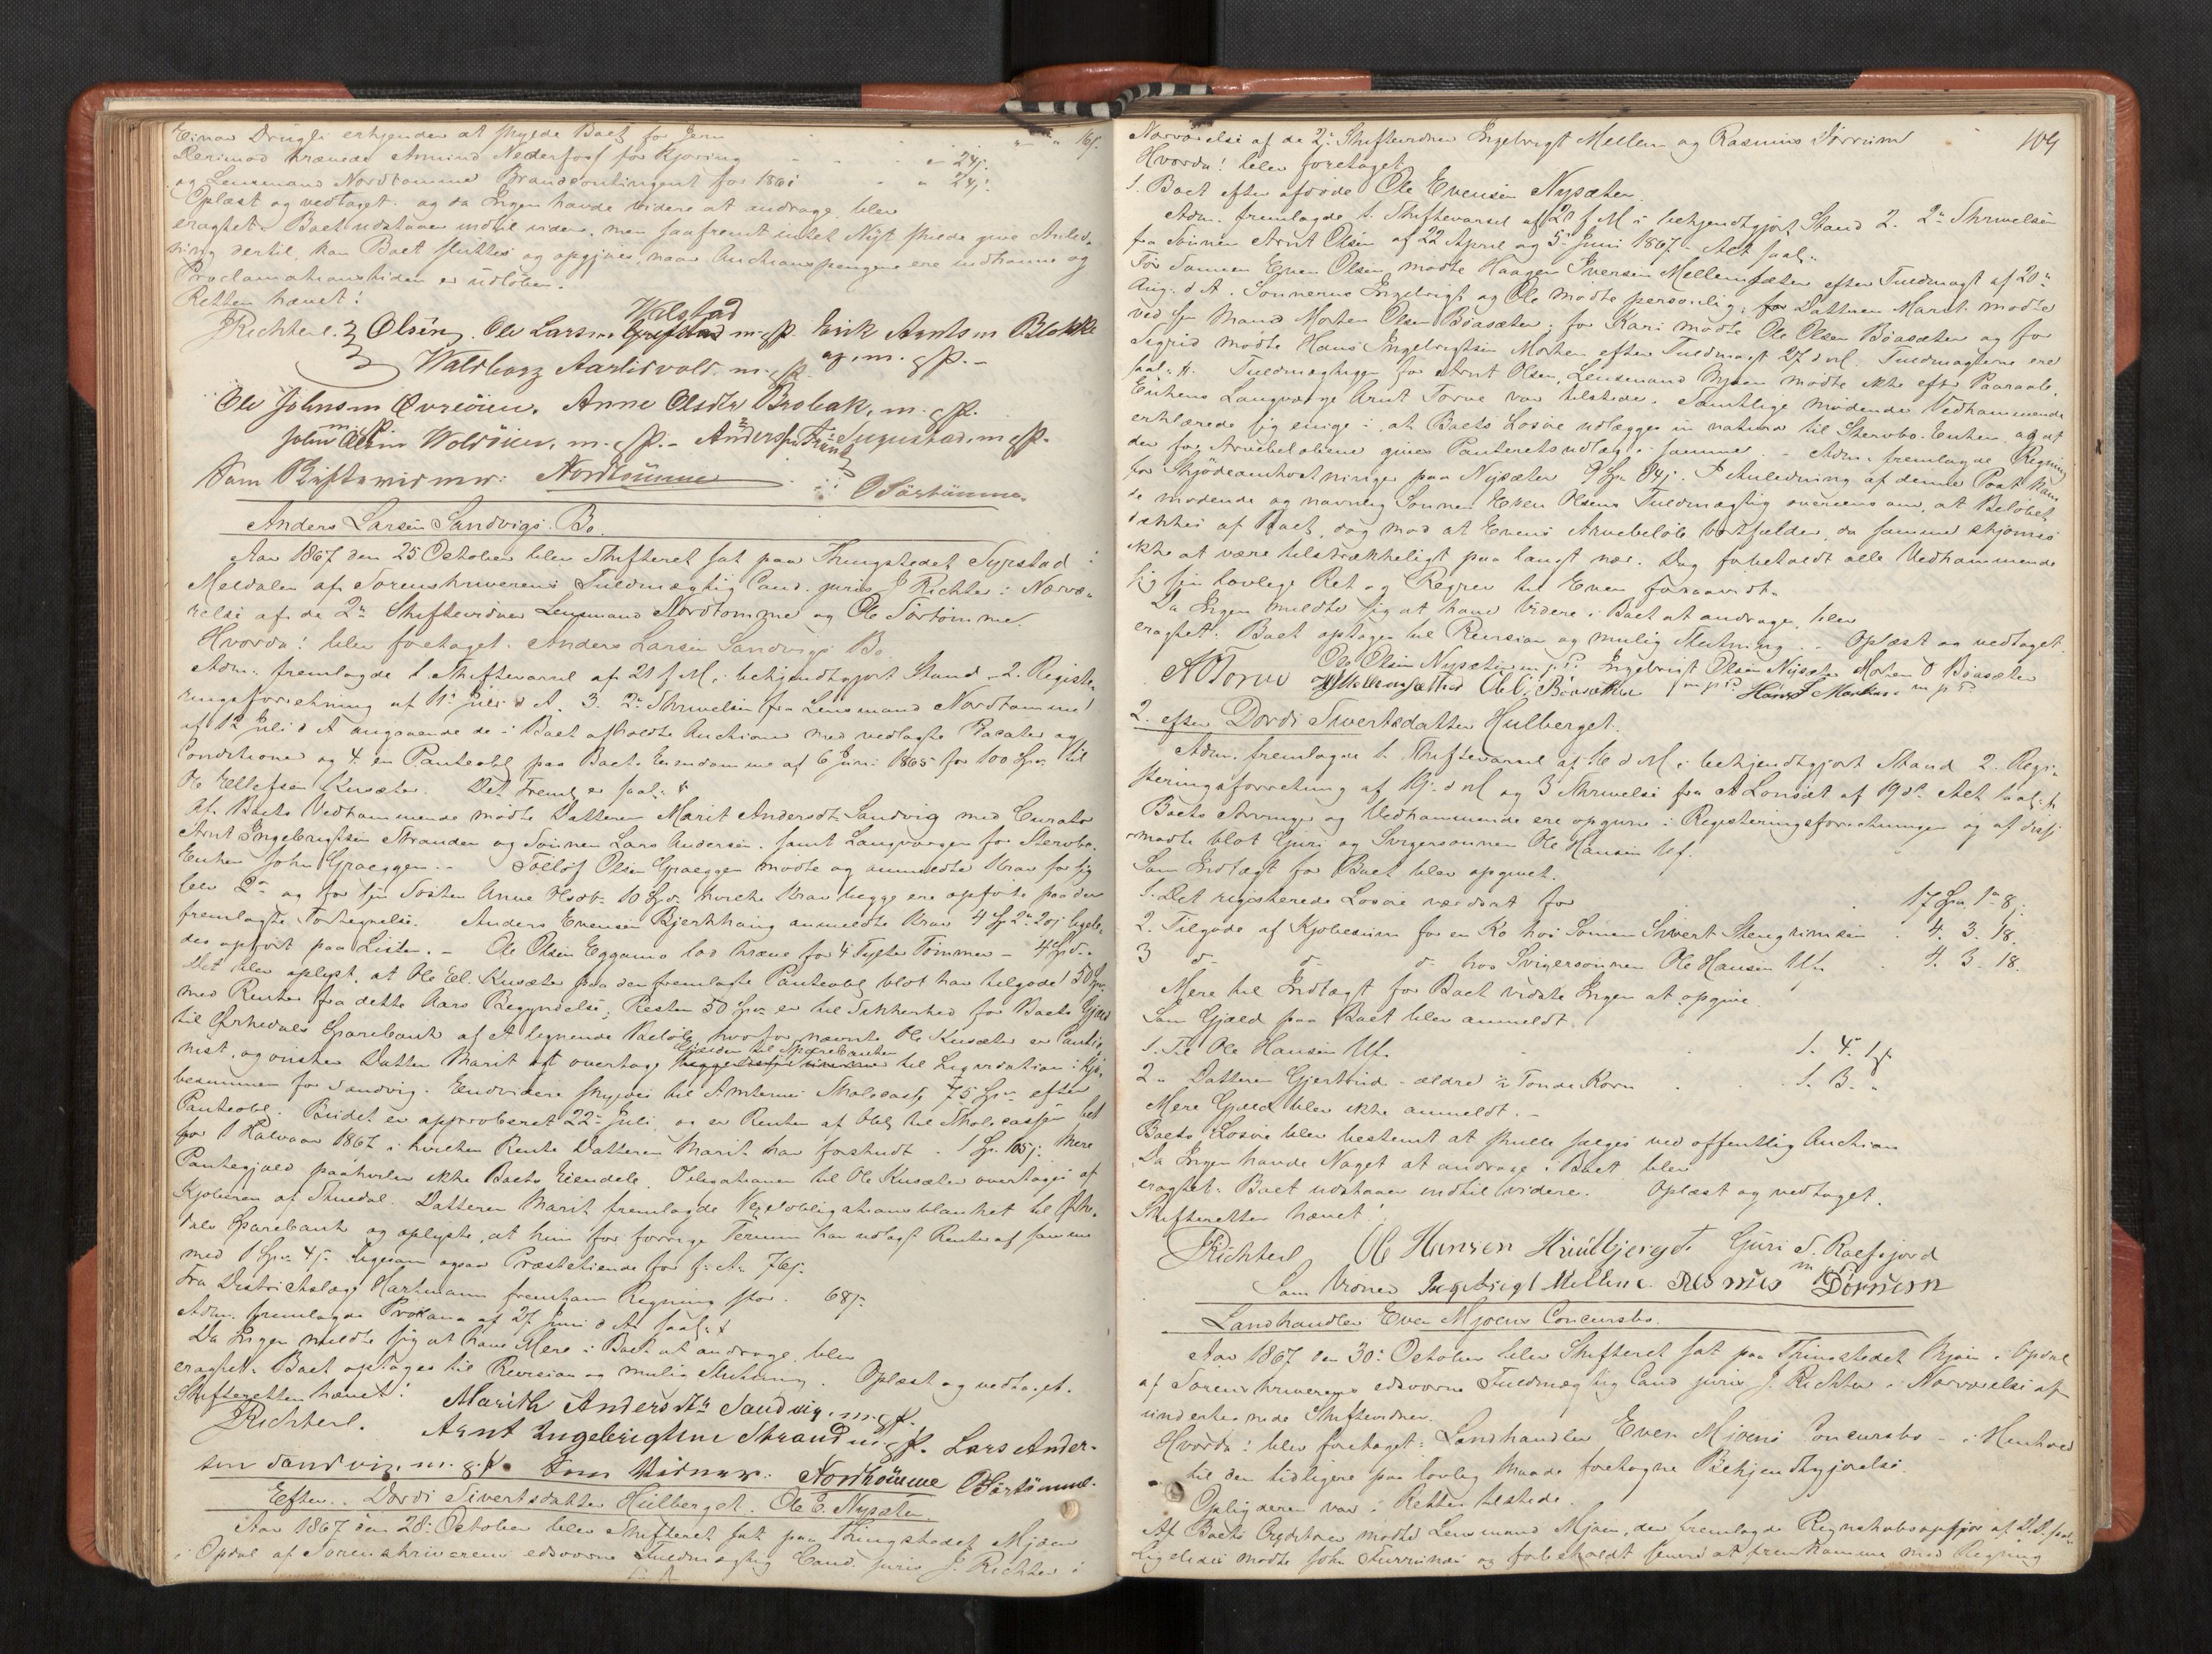 Einar Drugli erkjender at skylde Boet for Jern " " 16ſ.
Derimod krævede Amund Nederfoss for Kjøring - - - " 24ſ.
og Lensmand Nordtømme Brandcontingent for 1861 - " 24ſ.
Oplæst og vedtaget. og da Ingen havde videre at andrage, blev
eragtet: Boet udstaaer indtil videre, men saafremt intet Nyt skulde give Anled-
ning dertil, kan Boet sluttes og opgjøres, naar Auctionspengene ere indkomne og
Proclamationstiden er udløben.
Retten hævet!
Walstad
JRichter. Olsen. Ole Larsen m. f. P. Erik Arntsen Blokke
Waldborg Aarlivold. m. f. P. m. f. P. -
Ole Johnsen Øvreøien. Anne Olsdtr Brobak, m. f. P.
John Olsen Woldøien, m. f. P. - Anders m f P.
Som Skiftevidner: Nordtømme OSørtømme.
Anders Larsen Sandvigs Bo.
Aar 1867 den 25 October blev Skifteret sat paa Thingstedet Sypstad i
Meldalen af Sorenskriverens Fuldmægtig Cand. juris J Richter i Nærvæ-
relse af de 2de Skiftevidner Lensmand Nordtømme og Ole Sørtømme.
Hvorda! blev foretaget. Anders Larsen Sandvigs Bo.
Adm. fremlagde 1 Skiftevarsel af 21 f M. i bekjendtgjort Stand. 2. Registe-
ringsforretning af 11te Juli d A. 3. 2de Skrivelser fra Lensmand Nordtømme
af 12 Juli d A angaaende de i Boet afholdte Auctioner med vedlagte Placater og
Conditioner og 4. en Panteobl. paa Boets Eiendomme af 6 Juni 1865 for 100 Spd. til
Ole Ellefsen Kusæter. Det Freml. er saal.
Af Boets Vedkommende mødte Datteren Marit Andersdt. Sandvig med Curator
Arnt Ingebrigtsen Stranden og Sønnen Lars Andersen. samt Laugværgen for Stervbo-
Enken John Graeggen. - Tollof Olsen Graeggen mødte og anmeldte Krav for sig
og for sin Søster Anne Olsdt. 10 Spd. hvilke Krav begge ere opførte paa den
fremlagte Fortegnelse. Anders Evensen Bjerkhaug anmeldte Krav 4 Sp 2 20ſ ligele-
des opført paa Listen. - Ole Olsen Eggamo lod kræve for 4 Tylter Tømmer - 4 Spd..
Det blev oplyst, at Ole El. Kusæter paa den fremlagte Panteobl. blot har tilgode 50 Spd.
med Renter fra dette Aars Begyndelse; Resten 50 Spd. er til Sikkerhed for Boets Gjæld
til Ørkedals Sparebank af et lignende Beløb, hvorfor nævnte Ole Kusæter er Cautio-
nist, og ønsker Datter Marit at overtage Gjælden til Sparebanken til Liqvidation i Kjø-
besummen for Sandvig. Endvidere skyldes til Amtets Skolecasse 75 Spd. efter
Panteobl. Budet er approberet 22de Juli, og er Renten af Obl. til Skolecassen bet
for 1 Halvaar 1867, i hvilken Rente Datteren Marit har forskudt - 1 Sp. 105ſ. Mere
Pantegjæld paahviler ikke Boets Eiendele. Obligationen til Ole Kusæter overtages af
Kjøberen af Skuedal. Datteren Marit fremlagde Vexelobligationsblanket til Ørke-
dals Sparebank og oplyste, at hun for forrige Termin har udlagt Renter af samme
med 1 Spd. 4ſ. ligesom ogsaa Præstetiende for f. A. 76ſ.
Fra Districtslæge Hartmann fremkom Regning stor. 68ſ.
Adm. fremlagde Proclama af 27 Juni d A. saal.
Da Ingen meldte sig at have Mere i Boet at andrage, blev
eragtet: Boet optages til Revision og mulig Slutning. Oplæst og vedtaget.
Skifteretten hævet!
Richter. Marith Andersdtr Sandvig. m. f. P.
Arnt Ingebrigtsen Strand m f P. Lars Ander-
sen Sandvig. m. f. P. Som Vidner: Nordtømme OSørtømme.
Efter: Dordi Sivertsdatter Hulberget. Ole E. Nysæter
Aar 1867 den 28de October blev Skifteret sat paa Thingstedet Mjøen
i Opdal af Sorenskriverens edsvorne Fuldmægtig Cand. juris J. Richter i
109
Nærværelse af de 2de Skiftevidner Ingebrigt Mellem og Rasmus Dørrum
Hvorda! blev foretaget
1. Boet efter afdøde Ole Evensen Nysæter
Adm. fremlagde 1. Skiftevarsel af 21 f M i bekjendtgjort Stand 2. 2de Skrivelser
fra Sønnen Arnt Olsen af 22 April og 5te Juni 1867. Alt saal.
For Sønnen Even Olsen mødte Haagen Iversen Mellemsæter efter Fuldmagt af 20de
Aug. d A. Sønnerne Ingebrigt og Ole mødte personlig; for Datteren Marit mødte
ved sin Mand Morten Olsen Bøasæter; for Kari mødte Ole Olsen Bøasæter og for
Sigrid mødte Hans Ingebrigtsen Morken efter Fuldmagt 27 d M. Fuldmagterne ere
saal. Fuldmægtigen for Arnt Olsen, Lensmand Mjøen mødte ikke efter Paaraab.
Enkens Laugværge Arnt Torve var tilstede. Samtlige mødende Vedkommende
erklærede sig enige i, at Boets Løsøre udlægges in natura til Stervbo-Enken, og at
der for Arvebeløbene gives Panteretsudlæg i samme. - Adm. fremlagde Regning
for Skjødeomkostninger paa Nysæter 9 Sp. 84ſ. I Anledning af denne Post kom
de mødende og navnlig Sønnen Even Olsens Fuldmægtig overens om, at Beløbet
dækkes af Boet, dog mod at Evens Arvebeløb bortfalder, da samme skjønnes
ikke at være tilstrækkeligt paa langt nær. Dog forbeholdt alle Vedkommende
sig sin lovlige Ret og Regres til Even forsaavidt.
Da Ingen meldte sig at have Videre i Boet at andrage, blev
eragtet: Boet optages til Revision og mulig Slutning. - Oplæst og vedtaget.
AOTorve Ole Olsen Nysæter m. p. P. Ingebrigt Olsen Nysæter Morten O Bøasæter
HIMellemsæther Ole O. Bøasæther m p P. Hans I Morken m p P
2. efter Dordi Sivertsdatter Hulberget.
Adm. fremlagde 1. Skiftevarsel af 16 d M. i bekjendtgjort Stand 2. Regi-
streringsforretning af 17. d M og 3 Skrivelse fra A Lonsæt af 19 ds. Alt saal.
Boets Arvinger og Vedkommende ere opgivne i Registreringsforretningen og af disse
mødte blot Guri og Svigersønnen Ole Hansen Ulf.
Som Indtægt for Boet blev opgivet.
1. Det registrerede Løsøre værdsat for 17 Spd 1 8.
2. Tilgode af Kjøbesum for en Ko hos Sønnen Sivert Stengrimsen 4. 3. 18.
3 do do do hos Svigersønnen Ole Hansen Ulf. 4. 3. 18.
Mere til Indtægt for Boet vidste Ingen at opgive.
Som Gjæld paa Boet blev anmeldt.
1. Til Ole Hansen Ulf. 1. 4.
2 " Datteren Gjertrud - ældre ½ Tønde Korn 1. 3. "
Mere Gjæld blev ikke anmeldt. -
Boets Løsøre blev bestemt at skulle sælges ved offentlig Auction
Da Ingen havde Noget at andrage i Boet blev
eragtet: Boet udstaaer indtil videre. Oplæst og vedtaget.
Skifteretten hævet!
JRichter. Ole Hansen Huulbjerget. Guri S. Ralfsjord
m p P
Som Vidner Ingebrigt Mellem. Rasmus Dørrum
Landhandler Even Mjoens Concursbo.
Aar 1867 den 30te October blev Skifteret sat paa Thingstedet Mjøen i Opdal
af Sorenskriverens edsvorne Fuldmægtig Cand juris J. Richter i Nærværelse af
undertegnede Skiftevidner.
Hvorda! blev foretaget: Landhandler Even Mjoens Concursbo - i Henhold
til den tidligere paa lovlig Maade foretagne Bekjendtgjørelse.
Opbyderen var i Retten tilstede.
Af Boets Creditorer mødte Lensmand Mjøen, der fremlagde Regnskabsopgjør af D.D. saal.
Ligeledes mødte John og forbeholdt senere at fremkomme med Regning